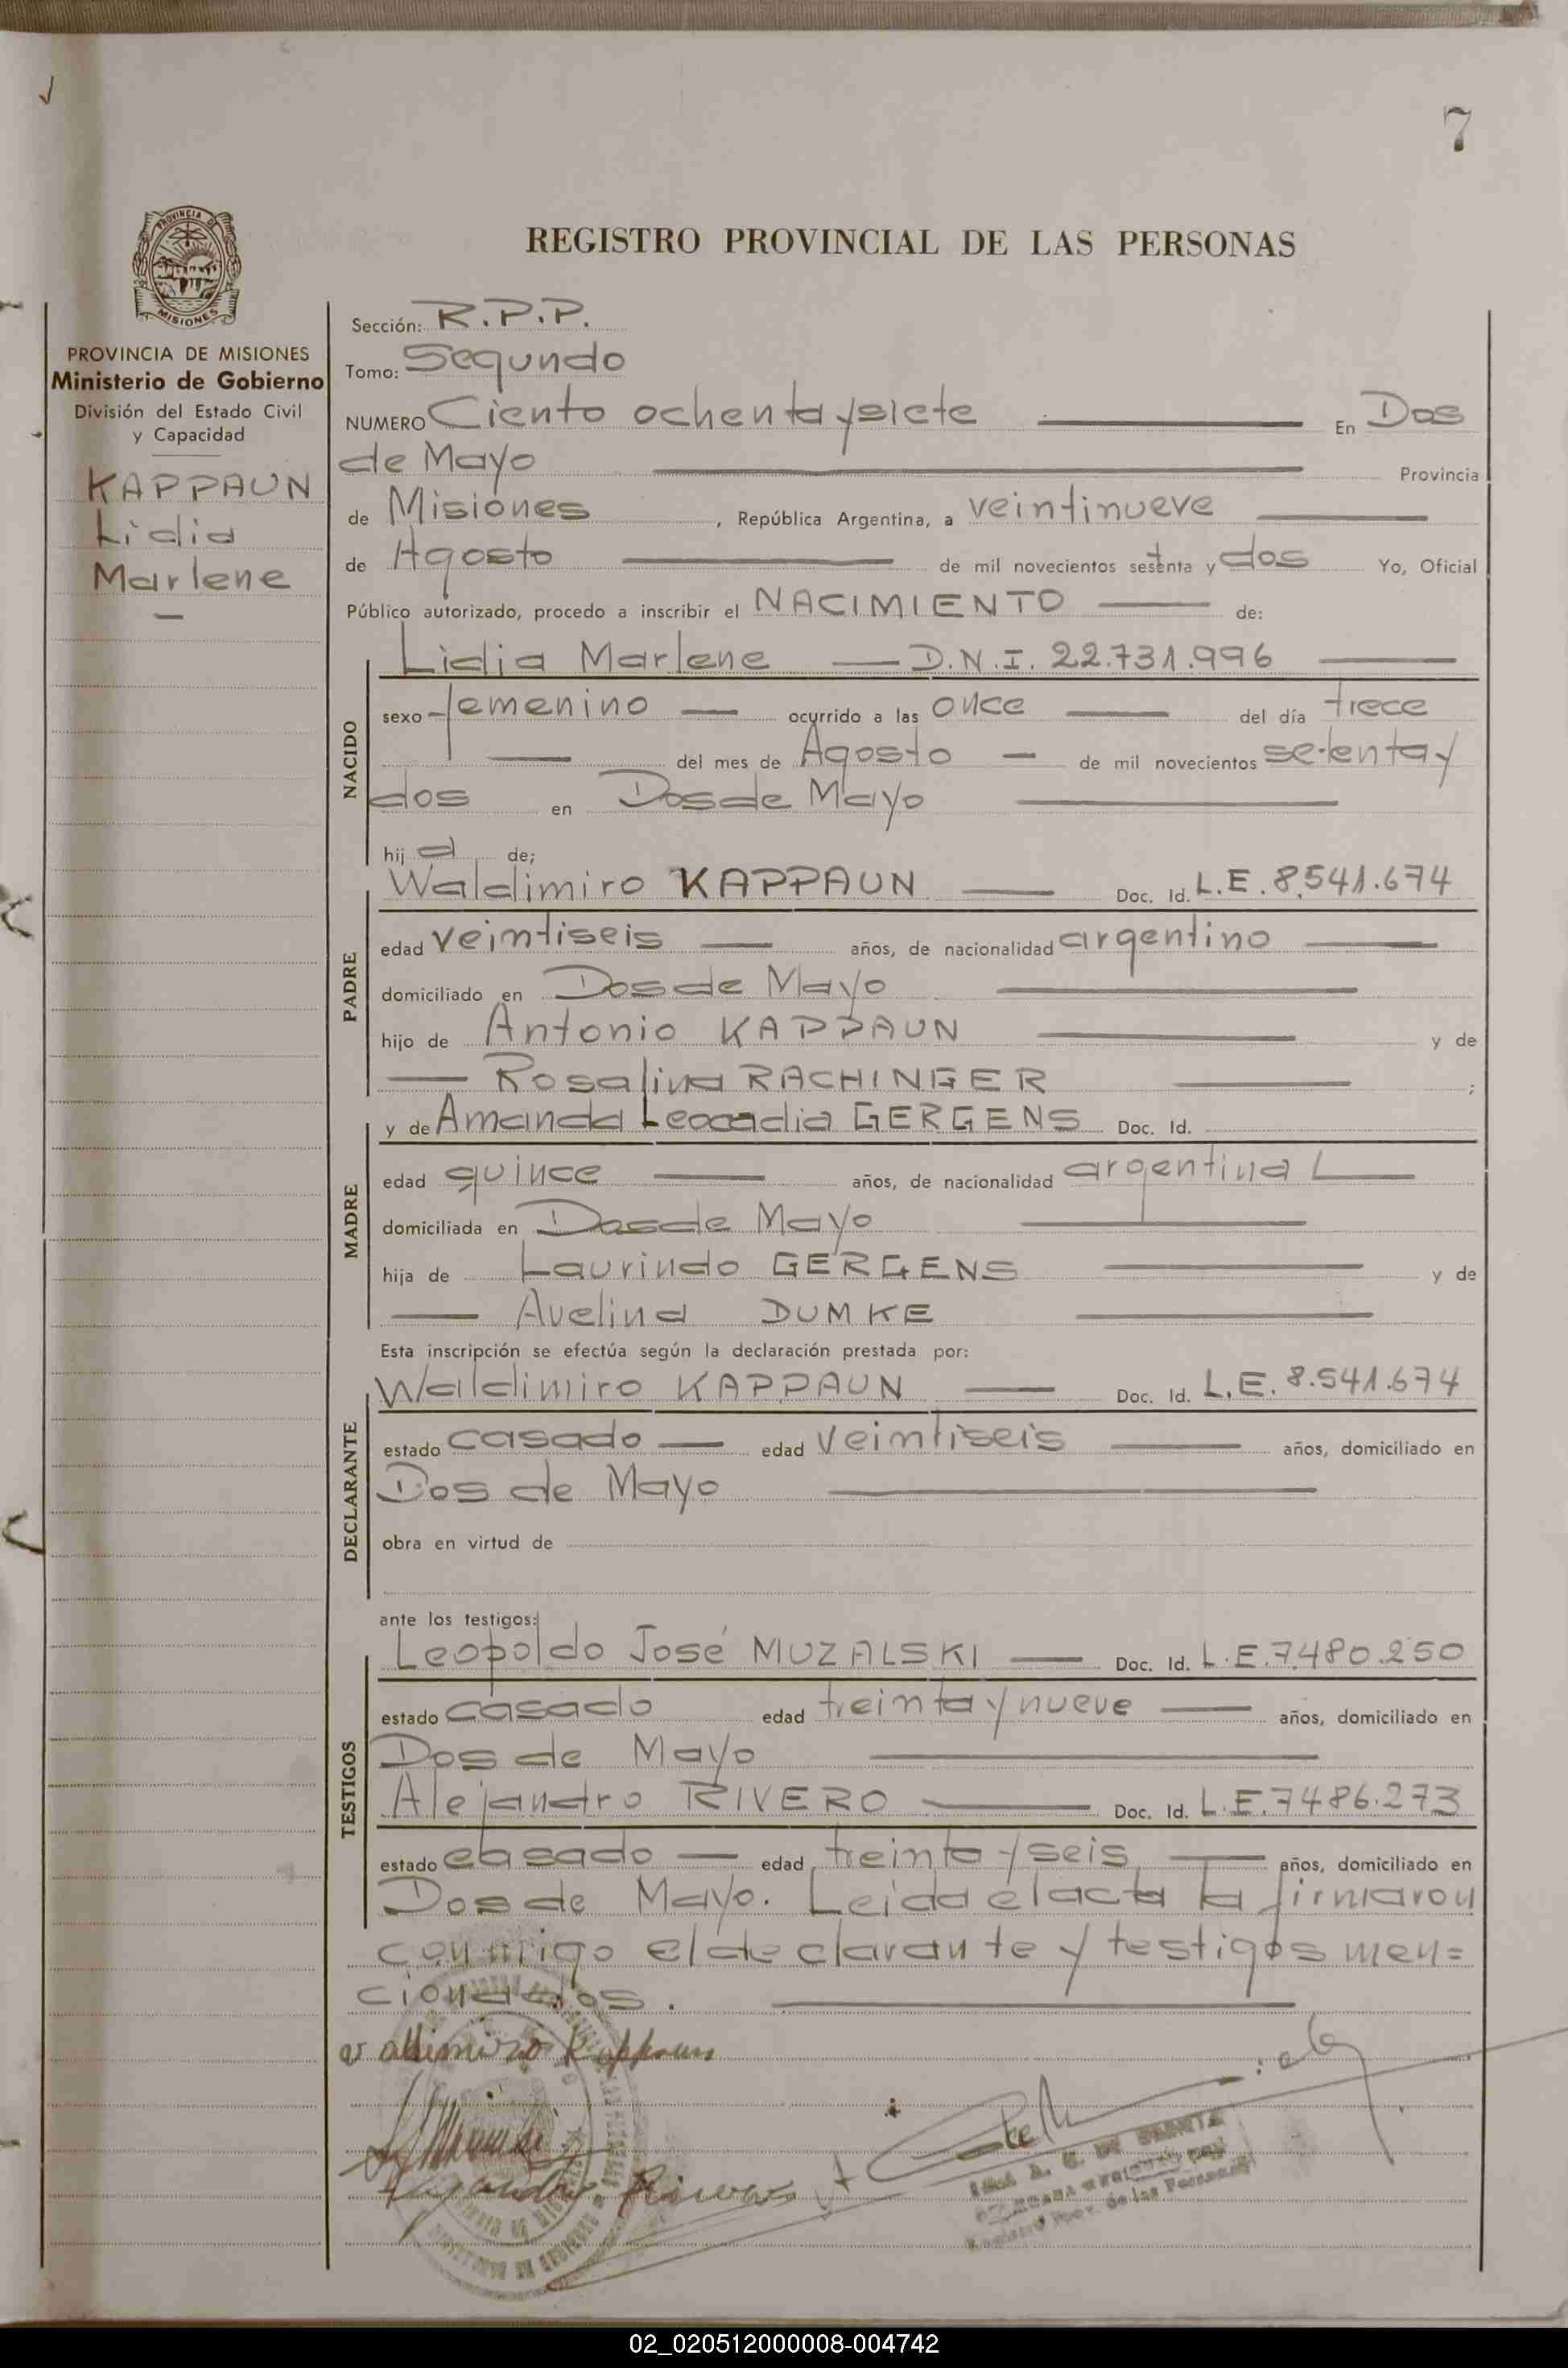 7
REGISTRO PROVINCIAL DE LAS PERSONAS
PROVINCIA DE
MISIONES
PROVINCIA DE MISIONES
Ministerio de Gobierno
División del Estado Civil
y Capacidad
KAPPAUN
Lidia
Marlene
Sección: R.P.P.
Tomo: Segundo
NUMERO Ciento ochenta y siete En Dos
de Mayo Provincia
de Misiones, República Argentina, a veintinueve
de Agosto de mil novecientos setenta y dos Yo, Oficial
Público autorizado, procedo a inscribir el NACIMIENTO de:
NACIDO
Lidia Marlene — D.N.I. 22.731.996
sexo femenino — ocurrido a las once del día trece
— del mes de Agosto — de mil novecientos setenta y
dos en Dos de Mayo
hija de;
PADRE
Waldimiro KAPPAUN — Doc. Id. L.E. 8.541.674
edad veintiseis — años, de nacionalidad argentino
domiciliado en Dos de Mayo
hijo de Antonio KAPPAUN y de
— Rosalina RACHINGER ;
MADRE
y de Amanda Leocadia GERGENS Doc. Id.
edad quince — años, de nacionalidad argentina
domiciliada en Dos de Mayo
hija de Laurindo GERGENS y de
— Avelina DUMKE
Esta inscripción se efectúa según la declaración prestada por:
DECLARANTE
Waldimiro KAPPAUN — Doc. Id. L.E. 8.541.674
estado casado — edad veintiseis — años, domiciliado en
Dos de Mayo
obra en virtud de
ante los testigos:
TESTIGOS
Leopoldo José MUZALSKI — Doc. Id. L.E. 7.480.250
estado casado edad treinta y nueve — años, domiciliado en
Dos de Mayo
Alejandro RIVERO — Doc. Id. L.E. 7486.273
estado casado — edad treinta y seis — años, domiciliado en
Dos de Mayo. Leida el acta la firmaron
conmigo el declarante y testigos men=
cionados.
valdimiro Kappaun
02_020512000008-004742